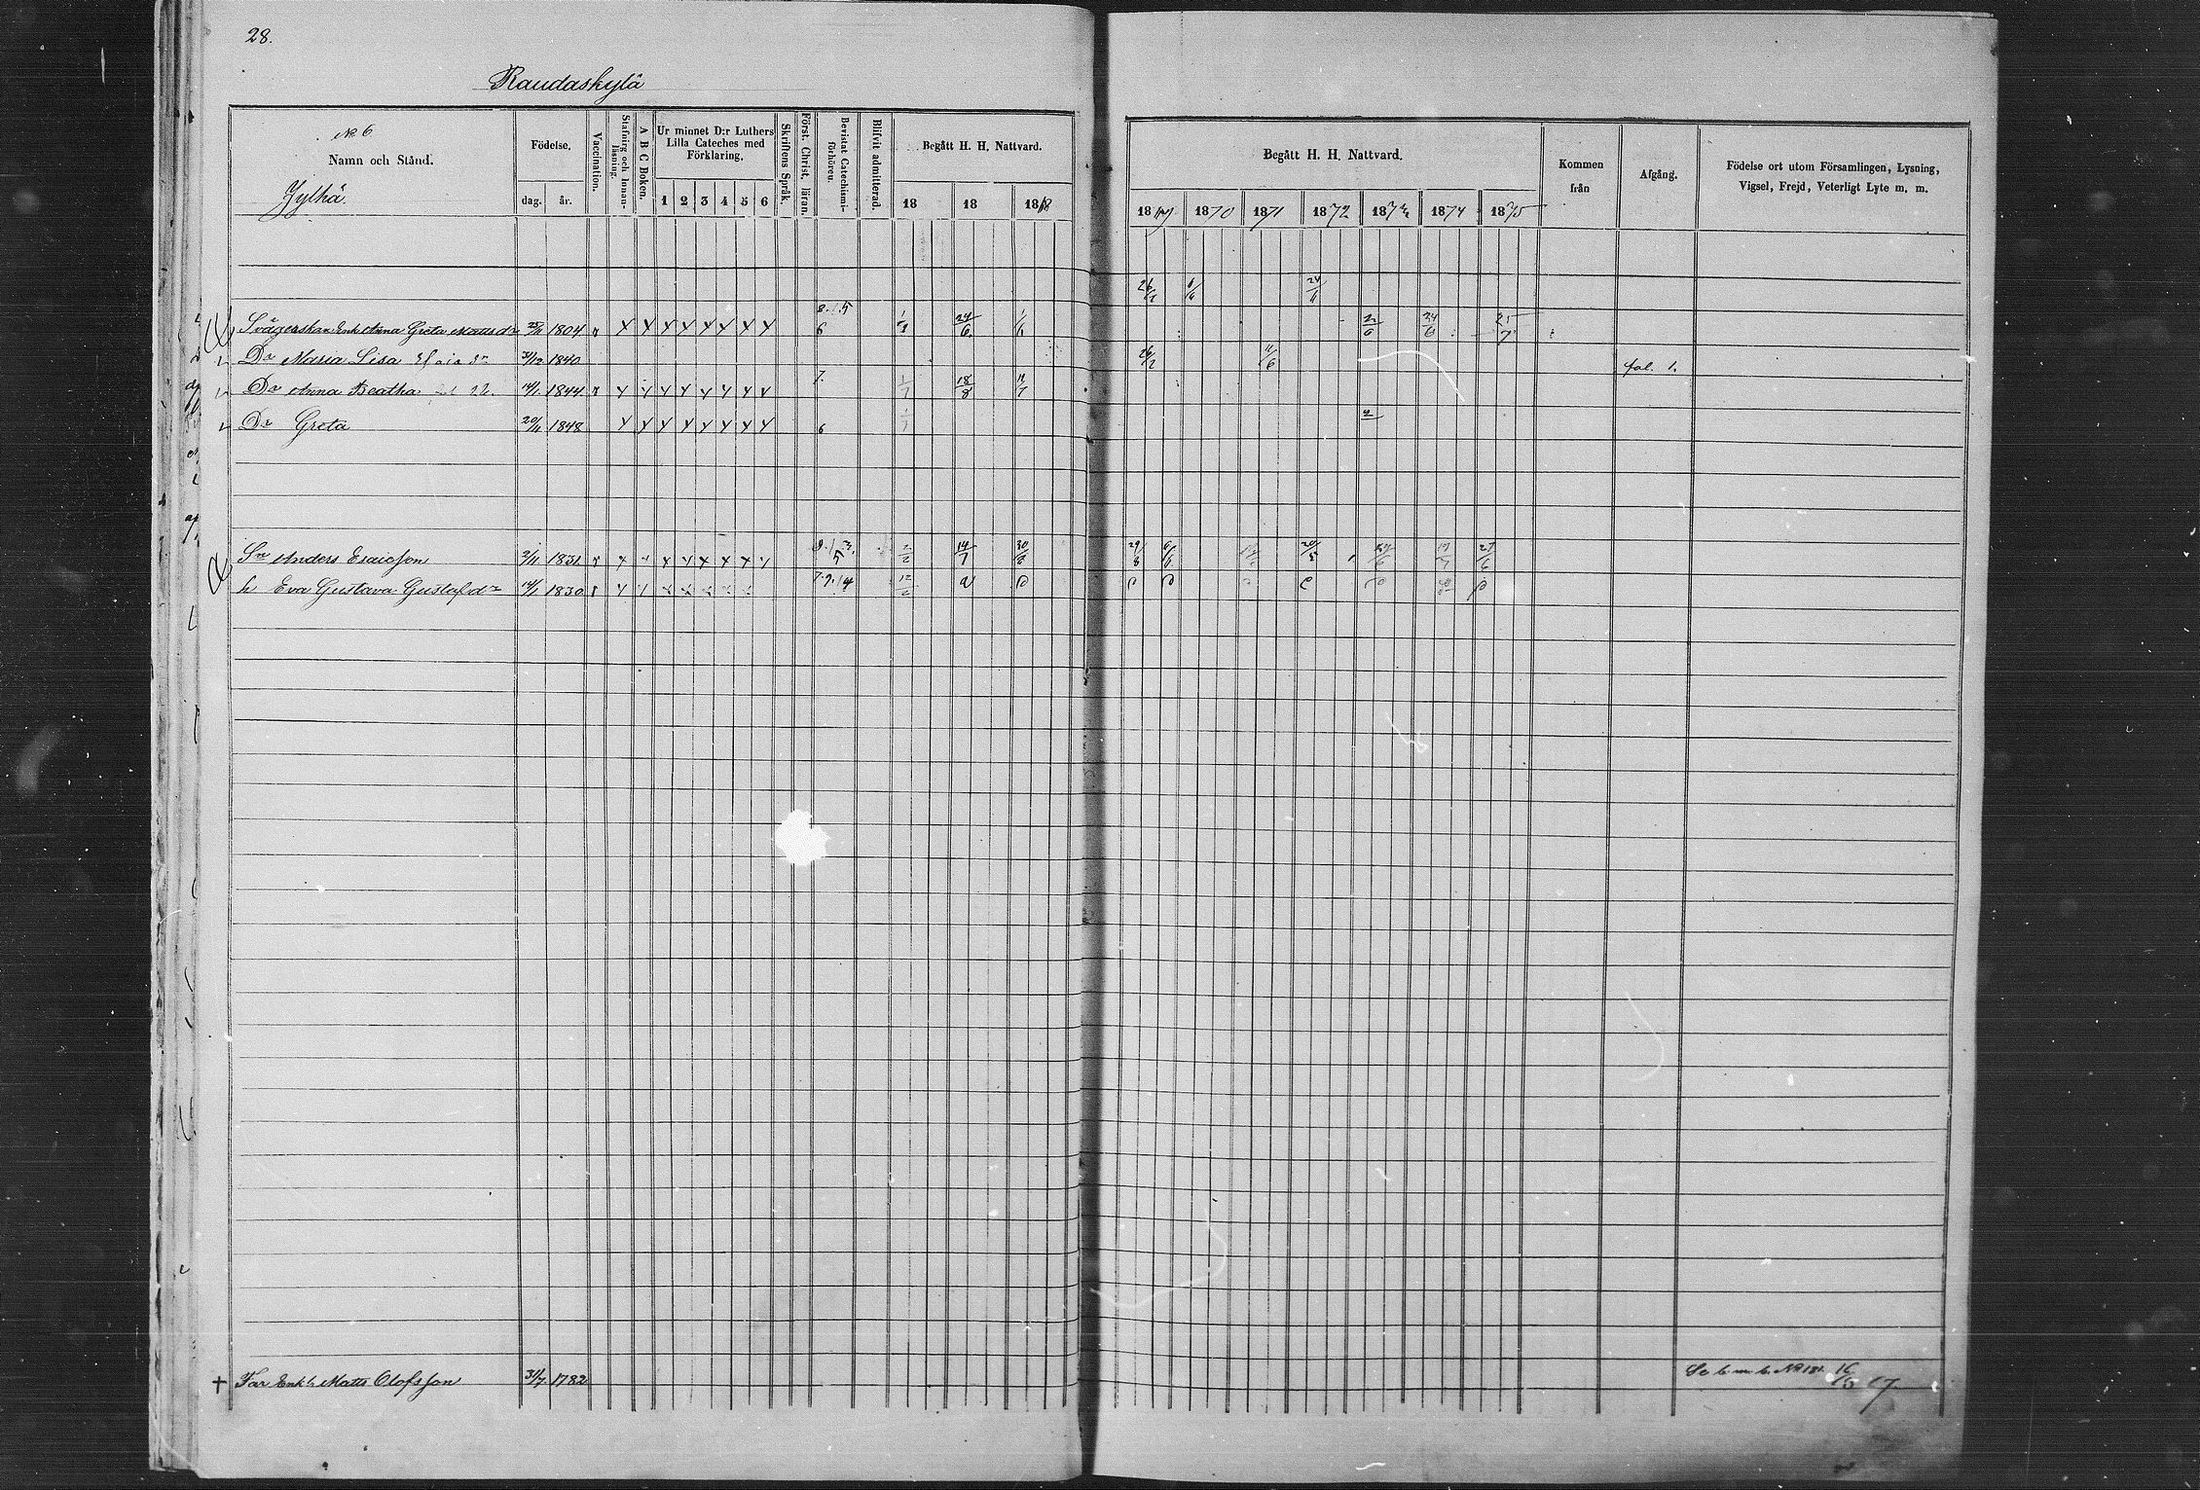 28.
Raudaskylä
No 6
Namn och Stånd.
Jylhä.
Födelse.
dag. år.
Vaccination.
Stafning och Innan-läsning.
A B C Boken.
Ur minnet D:r Luthers Lilla Cateches med Förklaring.
1 2 3 4 5 6
Skriftens Språk.
Först. Christ. läran.
Bevistat Catechismi-förhören.
Blifvit admitterad.
Begått H. H. Nattvard.
18 18 1868
Begått H. H. Nattvard.
1869 1870 1871 1872 1873 1874 1875
Kommen från
Afgång.
Födelse ort utom Församlingen, Lysning, Vigsel, Frejd, Veterligt Lyte m. m.
26/2 24/6
Svägerskan Enk Anna Greta Mattsdr 25/11 1804 x x x x x x x x 8. 5 6 24/6 24/6 25/7
Dr Maria Lisa 31/12 1840 26/2 11/6 fol. 1.
Dr Anna Beatha 14/1 1844 x x x x x x x x 7. 1/7 18/8 11/7
Dr Greta 20/11 1848 x x x x x x x x 6 1/7
Sn Anders Esaicsson 2/11 1831 x x x x x x x x 5 14/7 30/6 29/8 6/6 20/5 27/6
h Eva Gustava Gustafdr 14/1 1830 x x x x x x x x 7. 9. 14 12/2
+ Far Enkl. Matts Olofsson 31/7 1782 No 181 16/5 67.